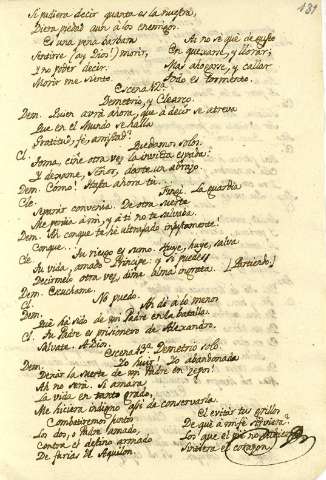 131
Si pudiera decir quanta es la nuestra,
Diera piedad aun à los enemigos.
Es una pena barbara
Sentirse (ay Dios!) morir,
Y no poder decir
Morir me siento.
Ai no sè què de gusto
En quexarse, y llorar;
Mas ahogarse, y callar
Todo es tormento.
Escena 12ª.
Demetrio, y Clearco.
Dem. Quien avrà ahora, que à decir se atreva
Que en el Mundo se halla
Gratitud, fe, amistad?
Cl. Quedamos solos.
Toma, ciñe otra vez la invicta espada,
Y deponme, Señor, darte un abrazo.
Dem. Como! Hasta ahora tu ...
Cle. Fingì. La guardia
Seducir convenìa. De otra suerte
Me perdìa à mì, y à ti no te salvaba
Dem. Ah conque te he ultrajado injustamente!
Conque...
Cle. Tu riesgo es sumo. Huye, huye, salva
Tu vida, amado Principe: y si puedes
Decirmelo otra vez, dime alma ingrata. [Partiendo]
Dem. Escuchame.
Cl. No puedo.
Dem. Ah dì à lo menos
Què hà sido de mi Padre en la batalla.
Cl. Tu Padre es prisionero de Alexandro.
Salvate. A Dios.
Escena 13ª. Demetrio solo.
Dem. Yo huir! Yo abandonada
Dexar la suerte de mi Padre en Zepos!
Ah no serà. Si amara
La vida en tanto grado,
Me hiciera indigno de conservarla.
Combatiremos juntos
Los dos, ò Padre amado,
Contra el destino armado
De furias del Aquilon.
El evitar tus grillos
De què à mi fe sirviera?
Los que el pie no
Sintiera el corazon.